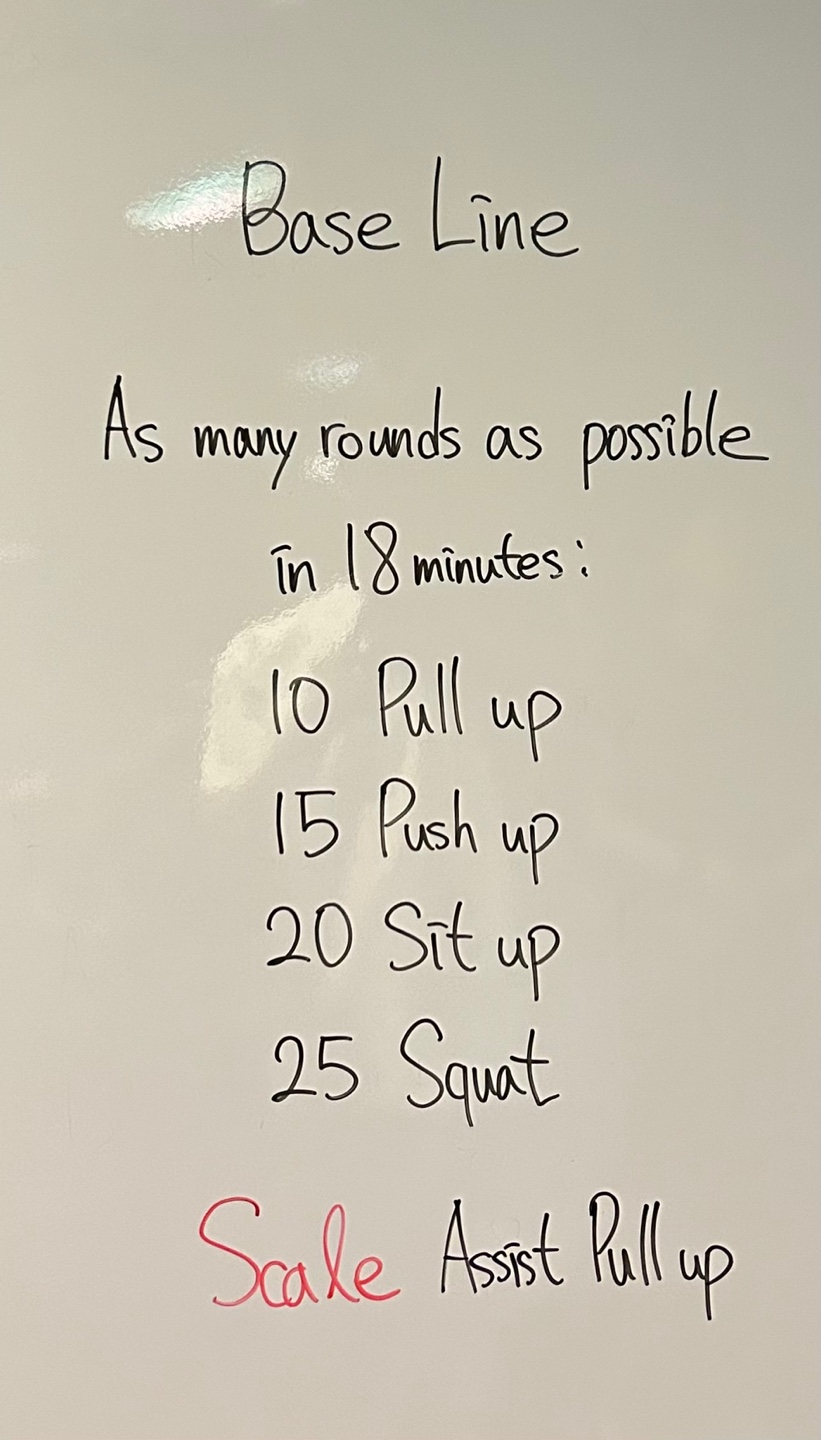 Base Line
As many rounds as possible
in 18 minutes:
10 Pull up
15 Push up
20 Sit up
25 Squat
Scale Assist Pull up